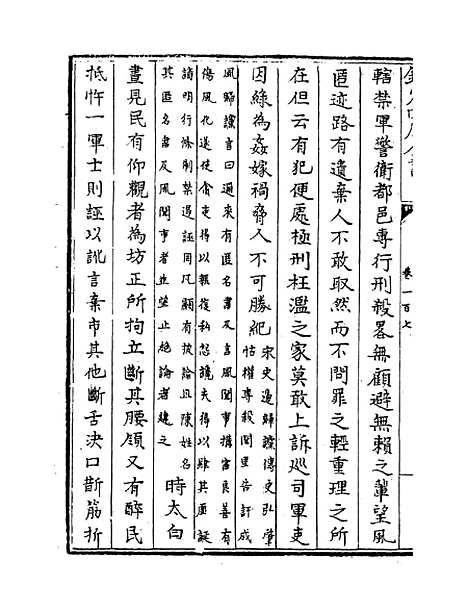 卷一百七
轄禁軍警衛都邑專行刑殺畧無顧避無賴之輩望風
匿迹路有遺棄人不敢取然而不問罪之輕重理之所
在但云有犯便處極刑枉濫之家莫敢上訴巡司軍吏
因緣為姦嫁禍脅人不可勝紀
宋史邊歸讜傳史弘肇
怙權專殺閭里告訐成
風歸讜言曰邇來有匿名書及言風聞事構害良善有
傷風化遂使貪吏得以報復私怨讒夫得以肆其虛誕
請明行條制禁遏誣罔凡顯有披論具陳姓名
其匿名書及風聞事者並望止絶論者韙之
時太白
晝見民有仰觀者為坊正所拘立斷其腰領又有醉民
抵忤一軍士則誣以訛言棄市其他斷舌決口斮筋折